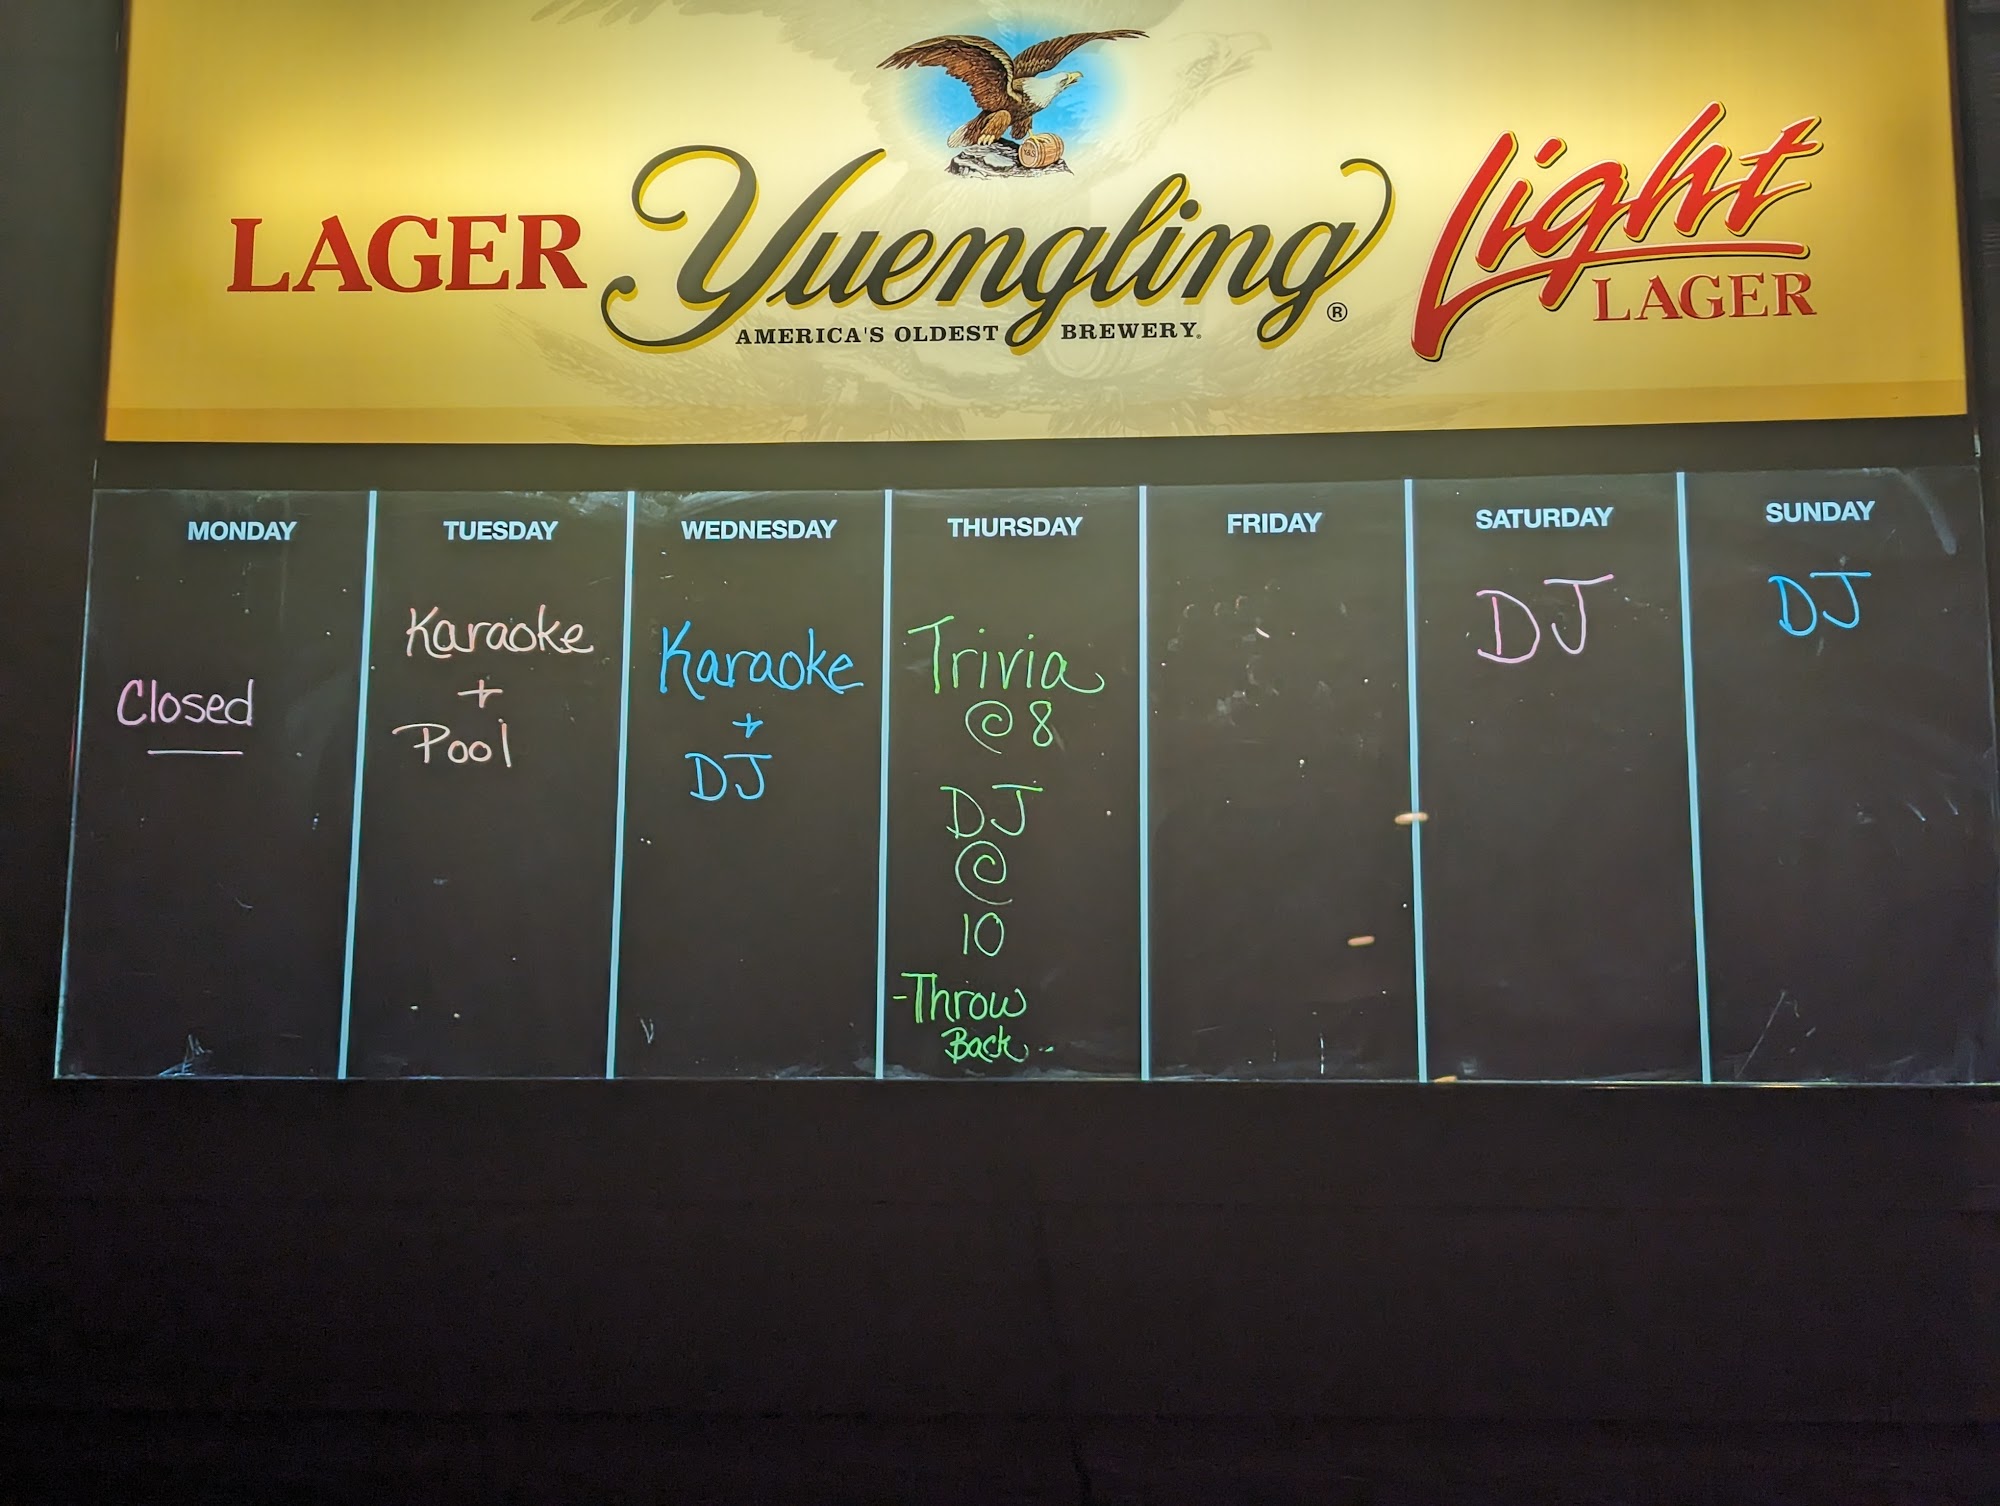 LAGER
Yuengling®
Light
LAGER
AMERICA'S OLDEST BREWERY.
MONDAY
Closed
TUESDAY
Karaoke
+
Pool
WEDNESDAY
Karaoke
+
DJ
THURSDAY
Trivia
@ 8
DJ
@
10
-Throw
Back..
FRIDAY
SATURDAY
DJ
SUNDAY
DJ